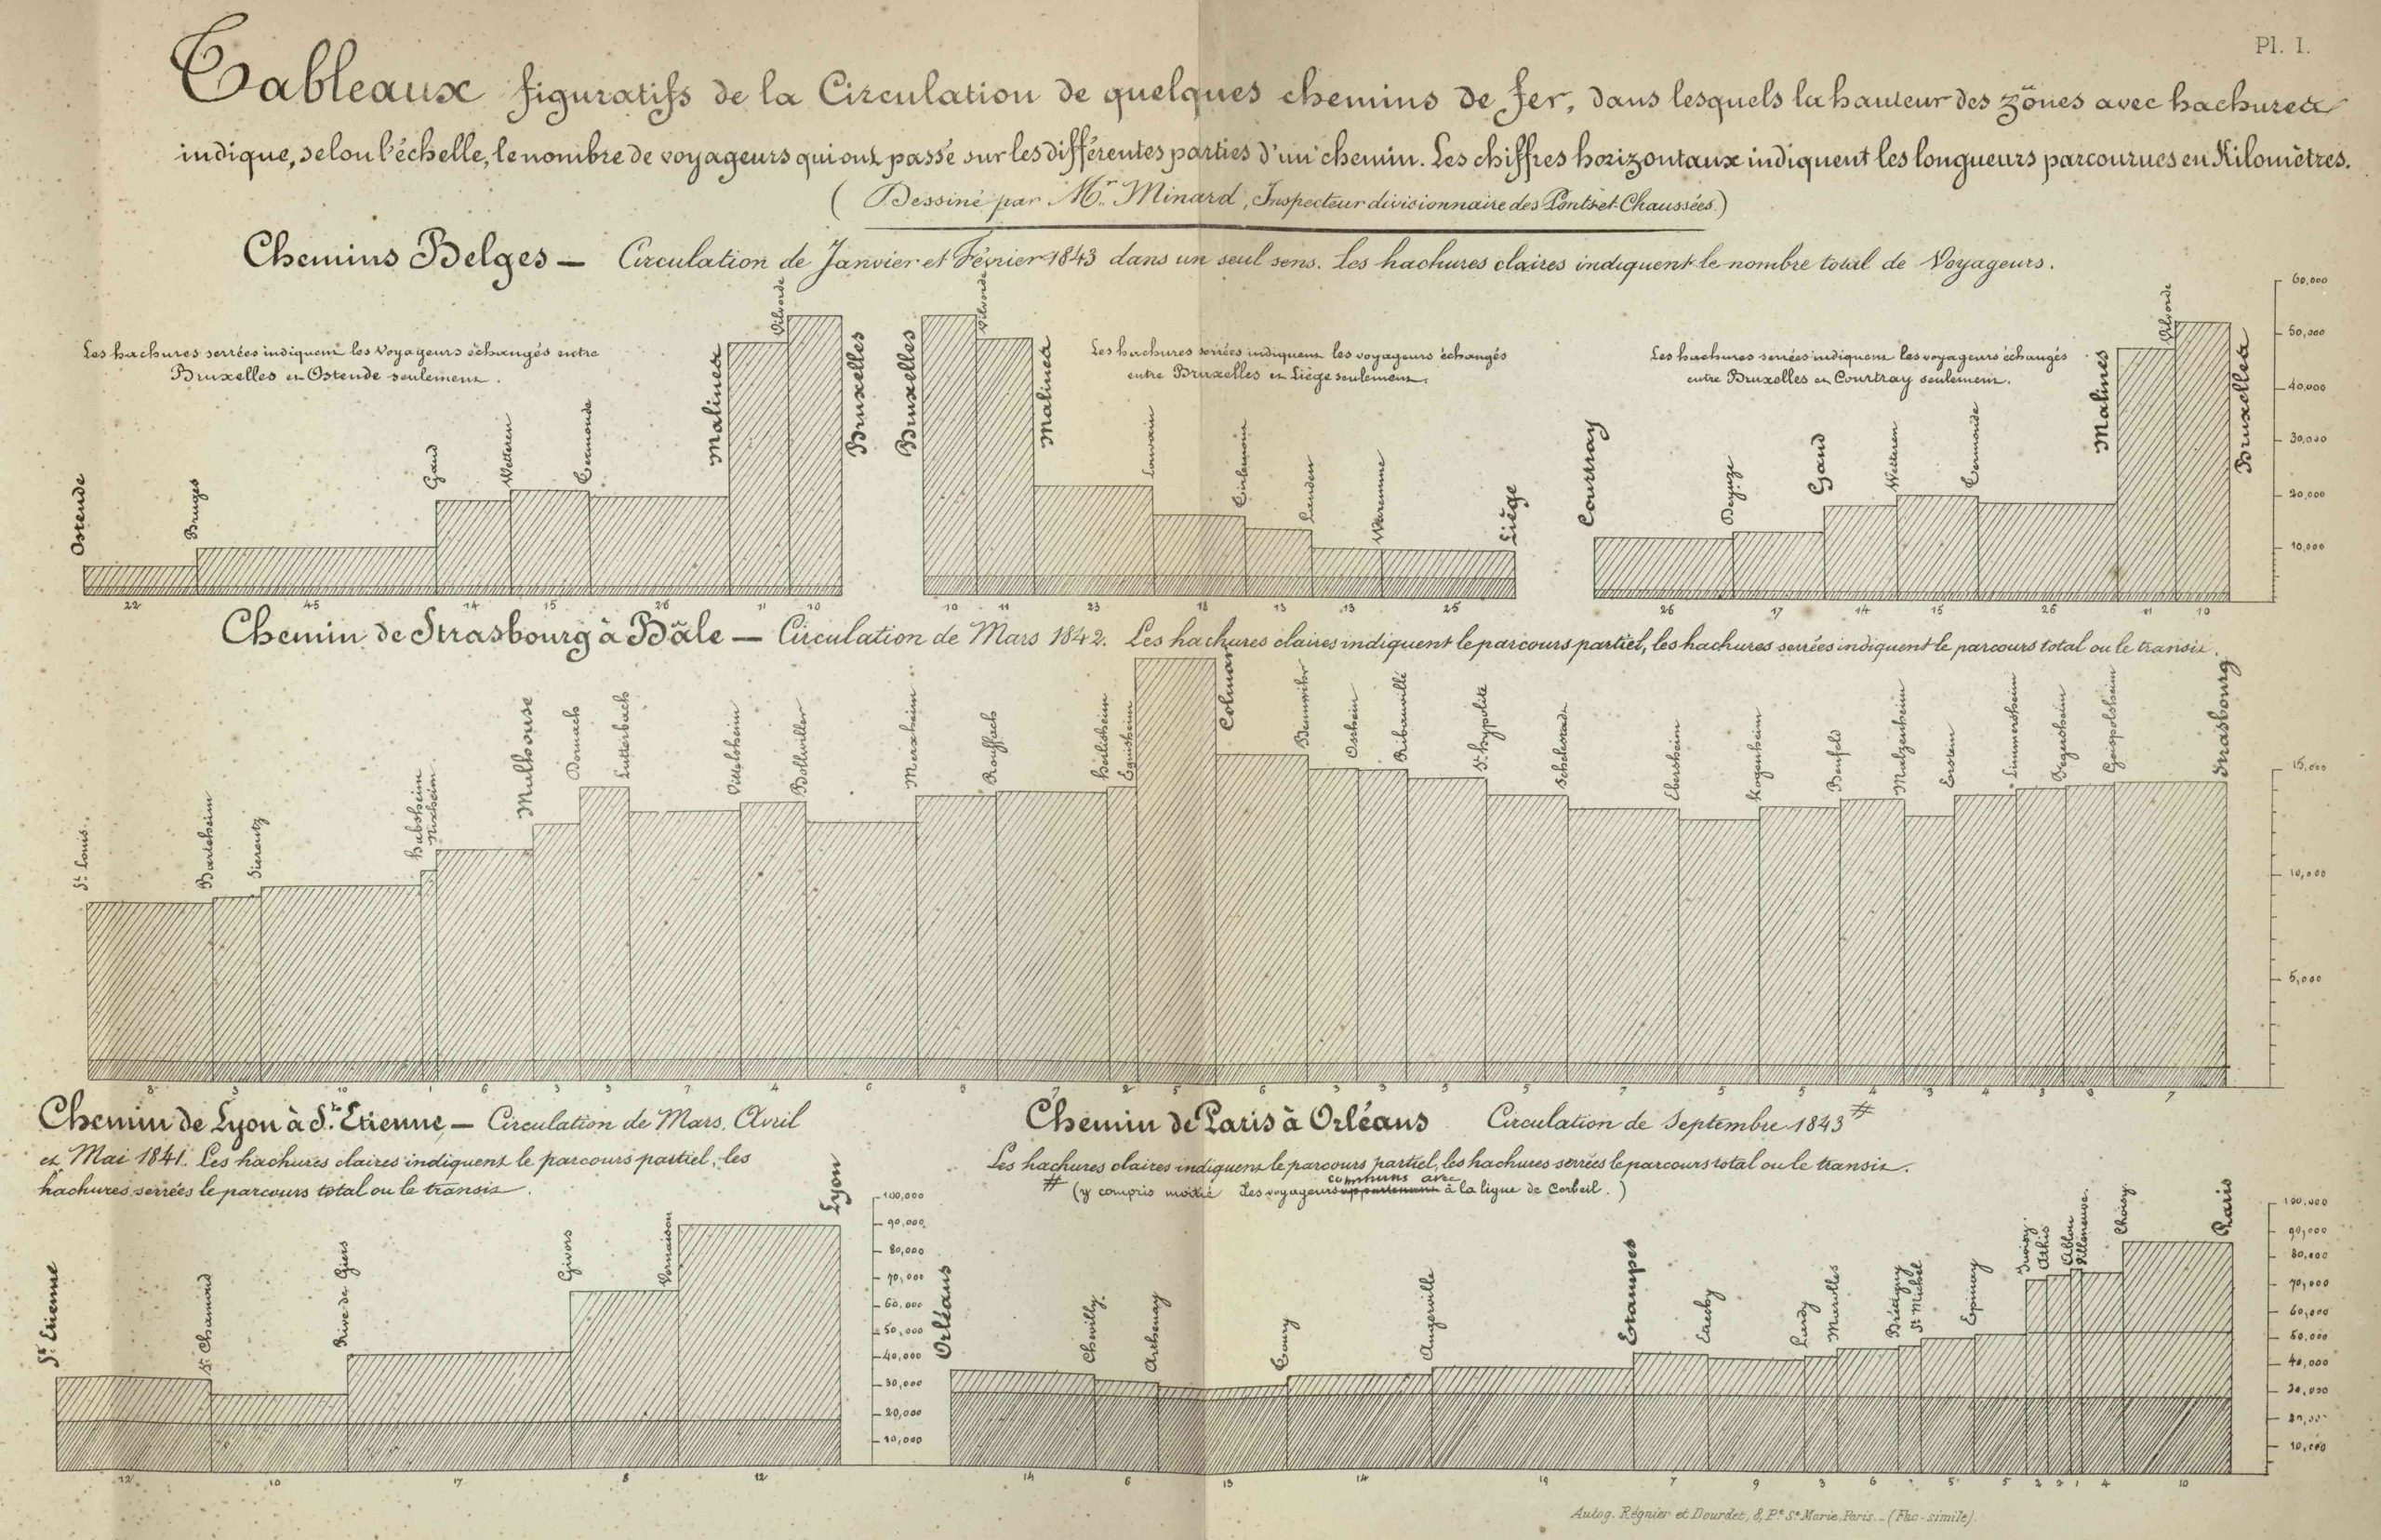 Pl. I.
Tableaux figuratifs de la Circulation de quelques chemins de fer, dans lesquels la hauteur des zônes avec hachures
indique, selon l'échelle, le nombre de voyageurs qui ont passé sur les différentes parties d'un chemin. Les chiffres horizontaux indiquent les longueurs parcourues en Kilomètres.
(Dessiné par Mr. Minard, Inspecteur divisionnaire des Ponts et Chaussées.)
Chemins Belges — Circulation de Janvier et Février 1843 dans un seul sens. Les hachures claires indiquent le nombre total de Voyageurs.
Les hachures serrées indiquent les voyageurs échangés entre
Bruxelles et Ostende seulement.
Ostende
Bruges
Gand
Wetteren
Termonde
Malines
Vilvorde
Bruxelles
22 45 14 15 26 11 10
Les hachures serrées indiquent les voyageurs échangés
entre Bruxelles et Liège seulement.
Bruxelles
Vilvorde
Malines
Louvain
Tirlemont
Landen
Waremme
Liège
10 11 23 18 13 13 25
Les hachures serrées indiquent les voyageurs échangés
entre Bruxelles et Courtray seulement.
Courtray
Deynze
Gand
Wetteren
Termonde
Malines
Vilvorde
Bruxelles
26 17 14 15 26 11 10
60,000
50,000
40,000
30,000
20,000
10,000
Chemin de Strasbourg à Bâle — Circulation de Mars 1842. Les hachures claires indiquent le parcours partiel, les hachures serrées indiquent le parcours total ou le transit.
St. Louis
Bartenheim
Sierentz
Habsheim
Rixheim
Mulhouse
Dornach
Lutterbach
Bollwiller
Merxheim
Rouffach
Herlisheim
Eguisheim
Colmar
Bennwihr
Ostheim
Ribauvillé
St. Hypolite
Schelestadt
Ebersheim
Kogenheim
Benfeld
Matzenheim
Erstein
Limmersheim
Fegersheim
Geispolsheim
Strasbourg
8 3 10 1 6 3 3 7 4 6 5 7 2 5 6 3 3 5 5 7 5 5 4 3 4 3 7
15,000
10,000
5,000
Chemin de Lyon à St. Etienne — Circulation de Mars, Avril
et Mai 1841. Les hachures claires indiquent le parcours partiel, les
hachures serrées le parcours total ou le transit.
St. Etienne
St. Chamond
Rive de Giers
Givors
Vernaison
Lyon
12 10 17 8 12
100,000
90,000
80,000
70,000
60,000
50,000
40,000
30,000
20,000
10,000
Chemin de Paris à Orléans Circulation de Septembre 1843 #
Les hachures claires indiquent le parcours partiel, les hachures serrées le parcours total ou le transit.
# (y compris moitié des voyageurs communs avec à la ligne de Corbeil.)
Orléans
Chevilly
Arthenay
Toury
Angerville
Etampes
Etrechy
Lardy
Marolles
Brétigny
St. Michel
Epinay
Juvisy
Athis
Ablon
Villeneuve
Choisy
Paris
14 6 13 14 19 7 9 3 6 5 5 2 2 1 4 10
100,000
90,000
80,000
70,000
60,000
50,000
40,000
30,000
20,000
10,000
Autog. Régnier et Dourdet, 8, Pge. Ste. Marie, Paris. - (Fac-simile).